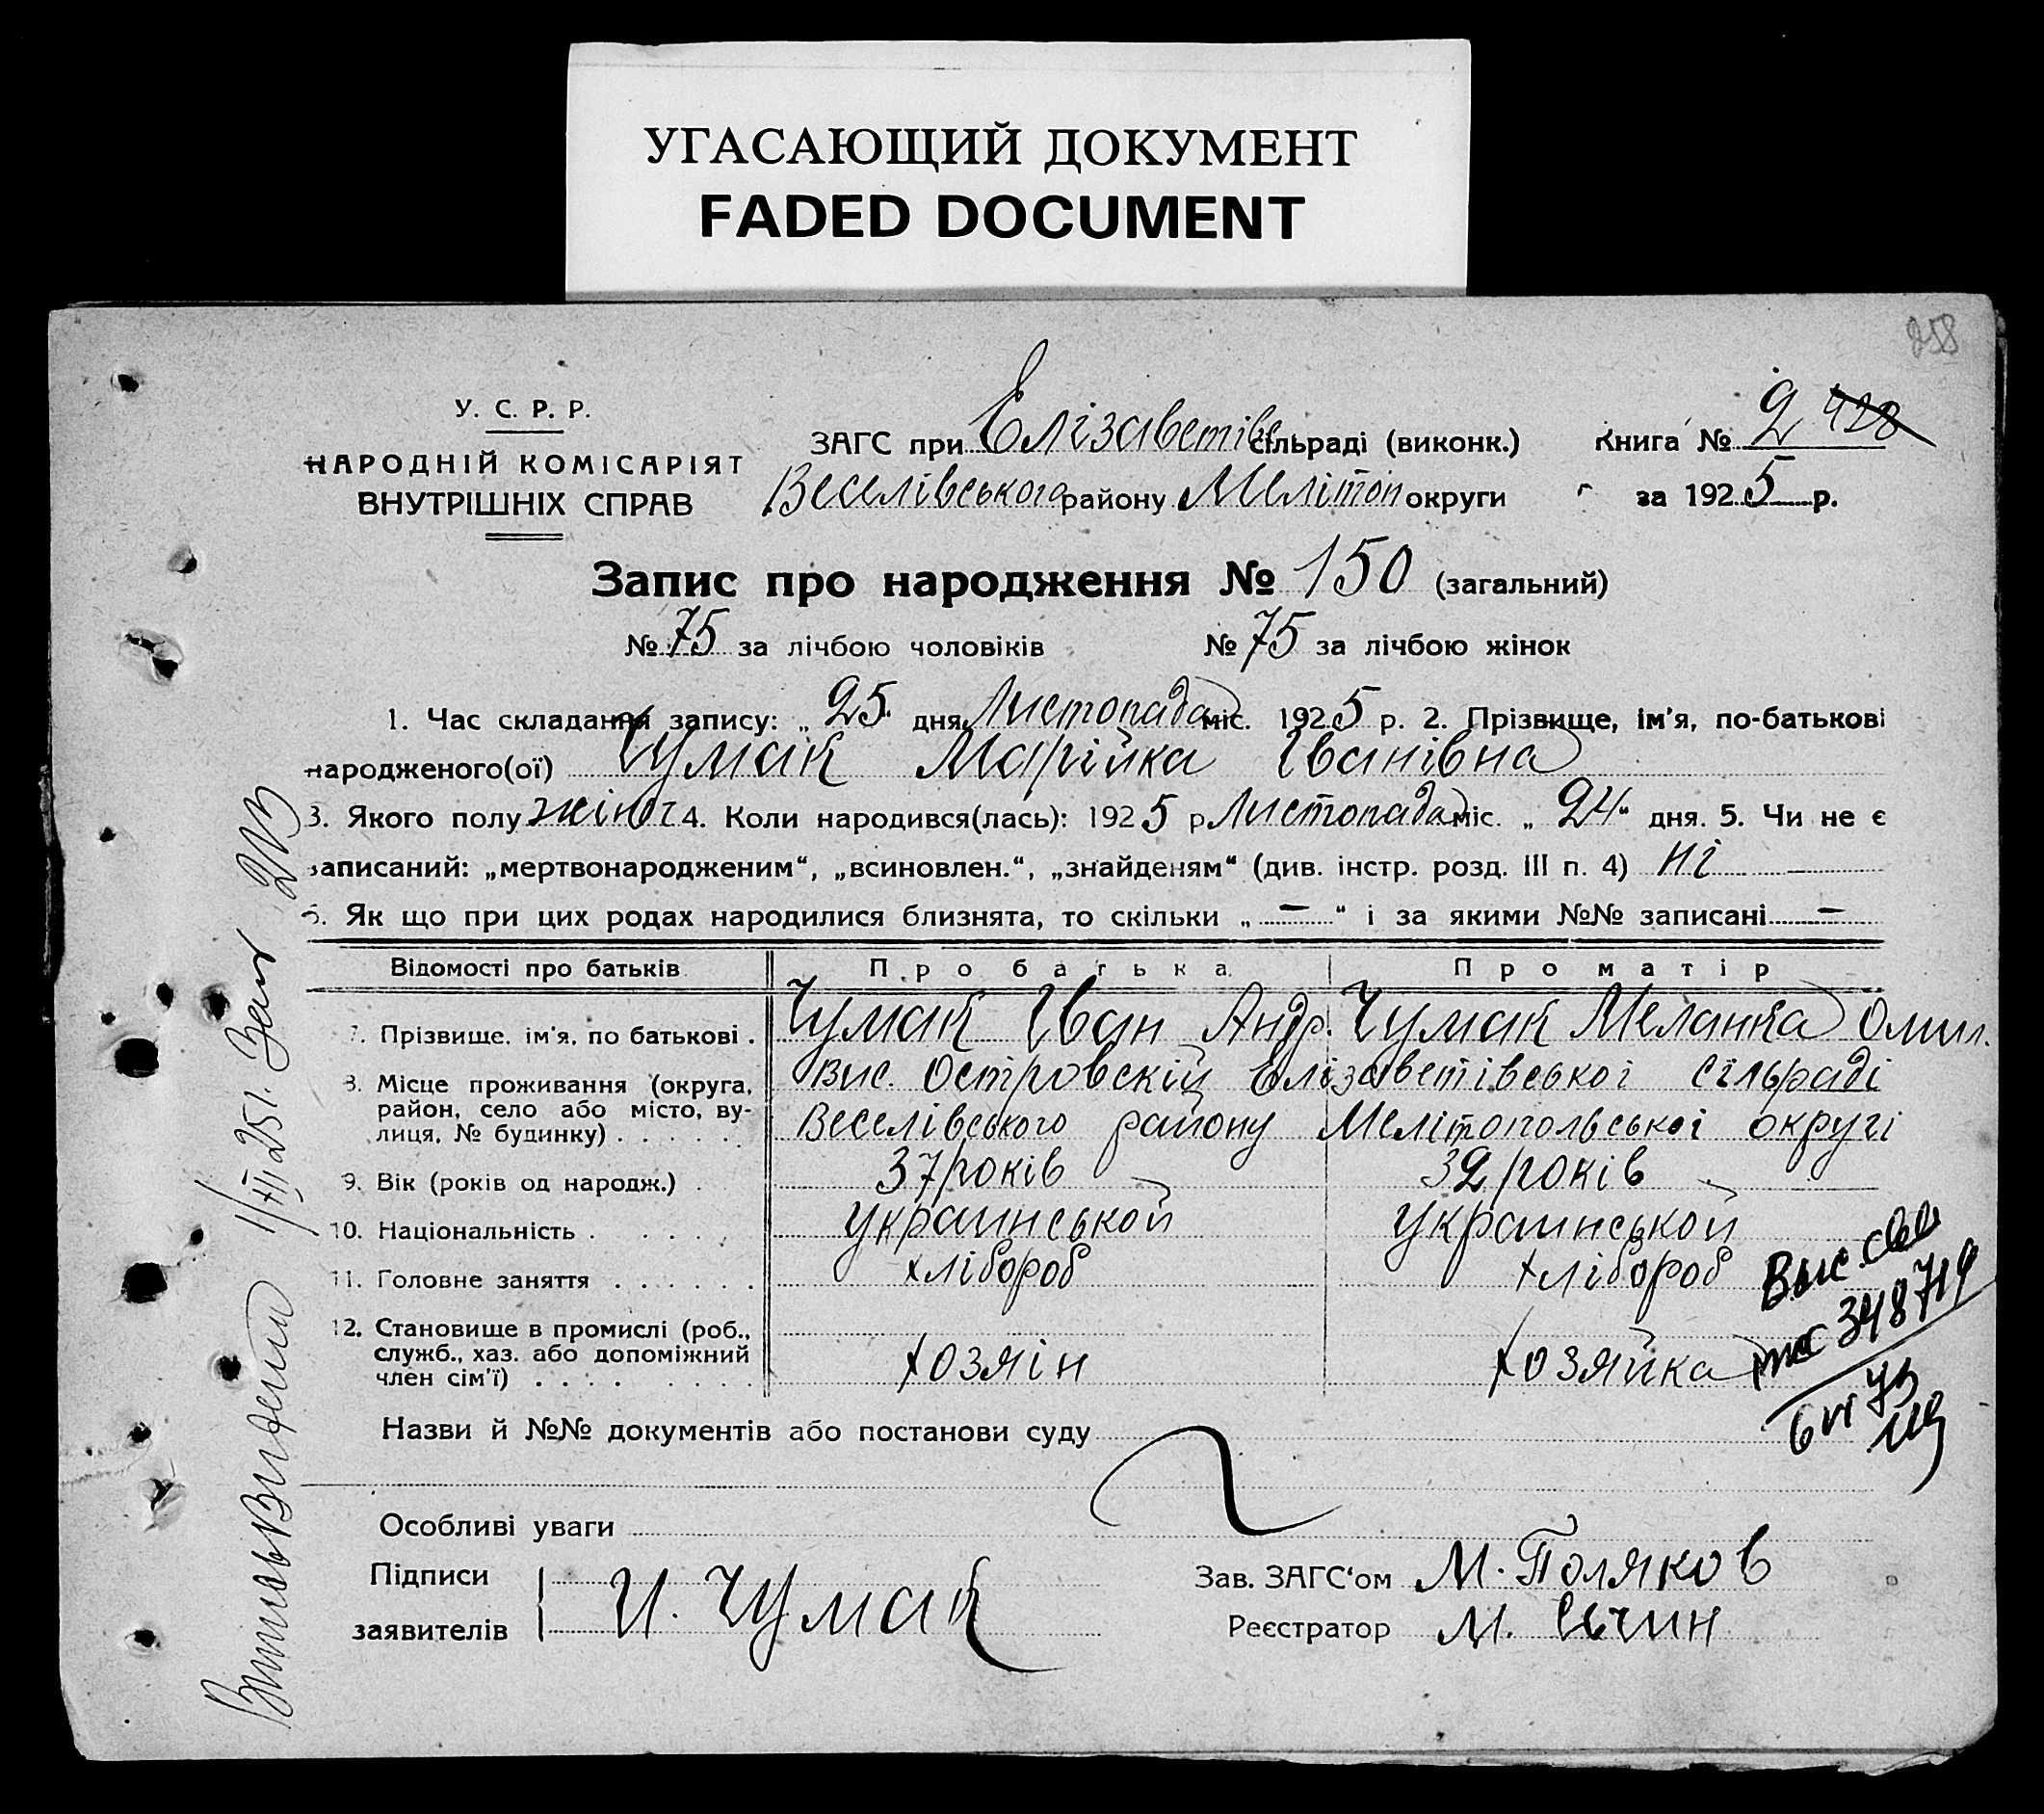 УГАСАЮЩИЙ ДОКУМЕНТ
FADED DOCUMENT
258
У. С. Р. Р.
НАРОДНІЙ КОМІСАРІЯТ
ВНУТРІШНІХ СПРАВ
ЗАГС при Елізаветівс сільраді (виконк.) Книга № 2 428
Веселівського району Меліtоп округи за 1925 р.
Запис про народження № 150 (загальний)
№ 75 за лічбою чоловіків № 75 за лічбою жінок
1. Час складання запису: „ 25 дня Листопада міс. 1925 р. 2. Прізвище, ім'я, по-батькові
народженого(ої) Чумак Марійка Іванівна
3. Якого полу жіноч 4. Коли народився(лась): 1925 р Листопада міс. „ 24 “ дня. 5. Чи не є
записаний: „мертвонародженим“, „всиновлен.“, „знайденям“ (див. інстр. розд. III п. 4) ні
6. Як що при цих родах народилися близнята, то скільки „ — “ і за якими №№ записані —
Відомості про батьків Про батька Про матір
7. Прізвище, ім'я, по батькові . Чумак Іван Андр. Чумак Меланка Омил.
8. Місце проживання (округа, район, село або місто, вулиця, № будинку) . . . . . . Вис. Островскій Елізаветівської сільраді
Веселівського району Мелітопольської округі
9. Вік (років од народж.) . 37 років 32 років
10. Національність . . . . . Украинськой Украинськой
11. Головне заняття . . . . . . хлібороб хлібороб
12. Становище в промислі (роб., служб., хаз. або допоміжний член сім'ї) . . . . . . . . хозяін хозяйка
Выс. сво
348719
6 VI 73
Назви й №№ документів або постанови суду
Особливі уваги
Підписи
заявителів И. Чумак
Зав. ЗАГС'ом М. Поляков
Реєстратор М.
1/XII 25 г.